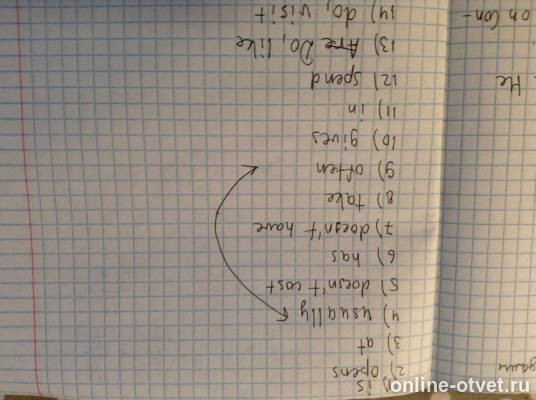 1) is
2) opens
3) at
4) usually
5) doesn't cost
6) has
7) doesn't have
8) take
9) often
10) gives
11) in
12) spend
13) Are Do, like
14) do, visit
He
on Con-
online-otvet.ru